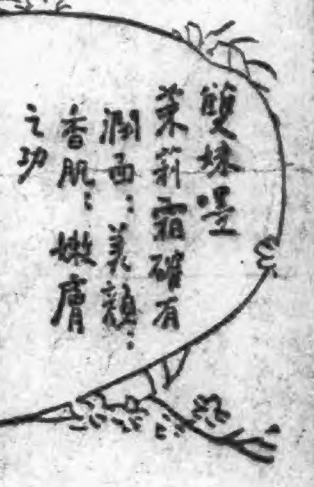 雙妹嚜
茉莉霜確有
潤面：美顏：
香肌：嫩膚
之功